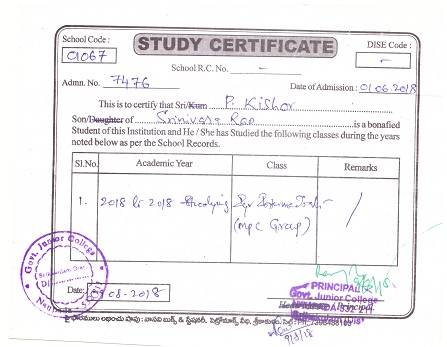 School Code :
01067
STUDY CERTIFICATE
DISE Code :
-
School R.C. No. -
Admn. No. 7476
Date of Admission : 01.06.2018
This is to certify that Sri/Kum P. Kishor
Son/Daughter of Srinivasa Rao is a bonafied
Student of this Institution and He / She has Studied the following classes during the years
noted below as per the School Records.
Sl.No. Academic Year Class Remarks
1. 2018 to 2018 Studying
(MPC Group)
Govt. Junior College
Date: 08-2018
PRINCIPAL
Govt. Junior College
Principal